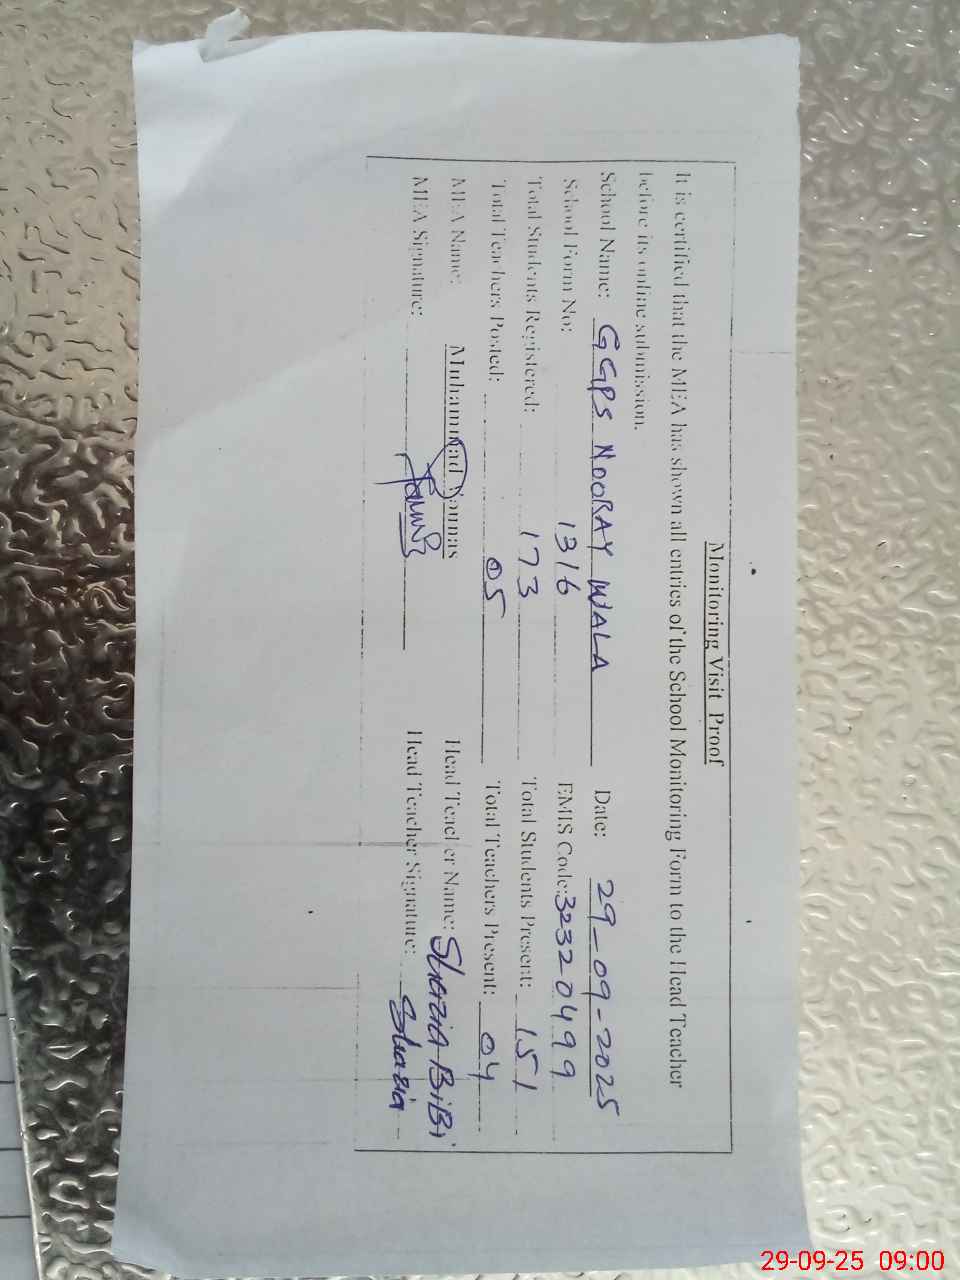 Monitoring Visit Proof
It is certified that the MEA has shown all entries of the School Monitoring Form to the Head Teacher
before its online submission.
School Name: GGPS NOORAY WALA Date: 29-09-2025
School Form No: 1316 EMIS Code: 32320499
Total Students Registered: 173 Total Students Present: 151
Total Teachers Posted: 05 Total Teachers Present: 04
MEA Name: Muhammad Younas Head Teacher Name: Shazia BiBi
MEA Signature: Head Teacher Signature: Shazia
29-09-25 09:00